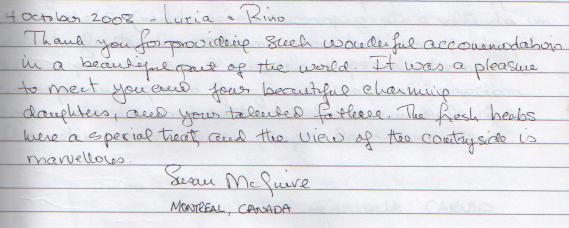 4 october 2008 - Lucia & Rino
Thank you for providing such wonderful accommodation
in a beautiful part of the world. It was a pleasure
to meet you and your beautiful charming
daughters, and your talented father. The fresh herbs
were a special treat, and the view of the countryside is
marvellous.
Susan McGuire
MONTREAL, CANADA